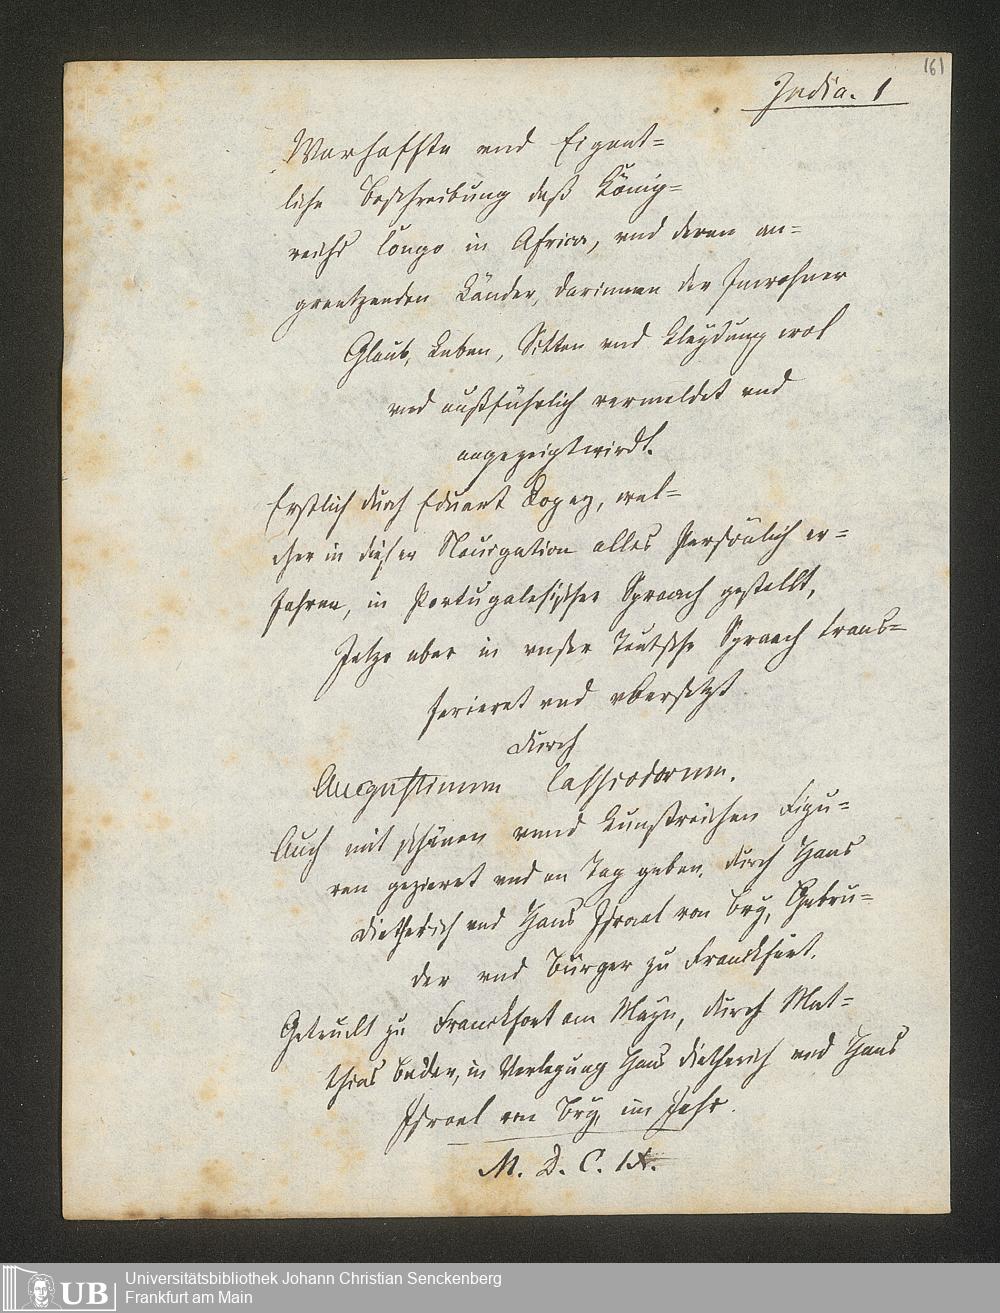 161
India. 1
Warhaffte und Eigent=
liche Beschreibung deß König=
reichs Congo in Africa, und deren an=
grentzenden Länder, darinnen der Inwohner
Glaub, Leben, Sitten und Kleydung wol
und außführlich vermeldet und
angezeigt wirdt.
Erstlich durch Eduart Lopez, wel=
cher in dieser Navigation alles Persönlich er=
fahren, in Portugalesischer Spraach gestellt,
Jetzo aber in unser Teutsche Spraach trans=
ferieret und ubersetzt
durch
Augustinum Cassiodorum.
Auch mit schönen unnd kunstreichen Figu=
ren gezieret und an Tag geben, durch Hans
Dietherich und Hans Israel von Bry, Gebru=
der und Bürger zu Franckfurt.
Getruckt zu Franckfort am Mayn, durch Mat=
thias Becker, in Verlegung Hans Dietherich und Hans
Israel von Bry, im Jahr.
M. D. C. IX.
UB
Universitätsbibliothek Johann Christian Senckenberg
Frankfurt am Main